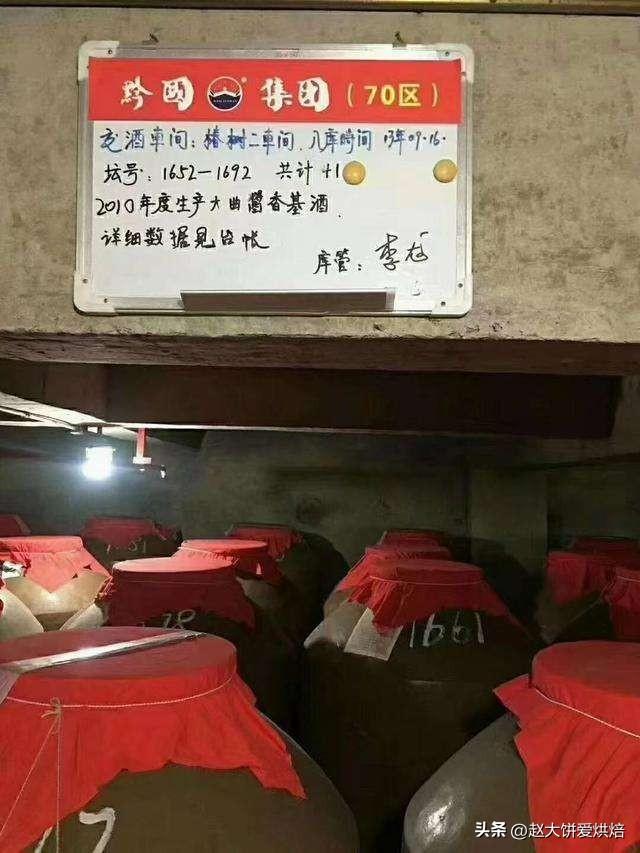 黔國 集团（70区）
交酒車间：椿树二車间．入库時间 13年09.16.
坛号：1652—1692 共计41
2010年度生产大曲醬香基酒．
详细数据见台帐
库管：李
1661
78
17
头条 @赵大饼爱烘焙